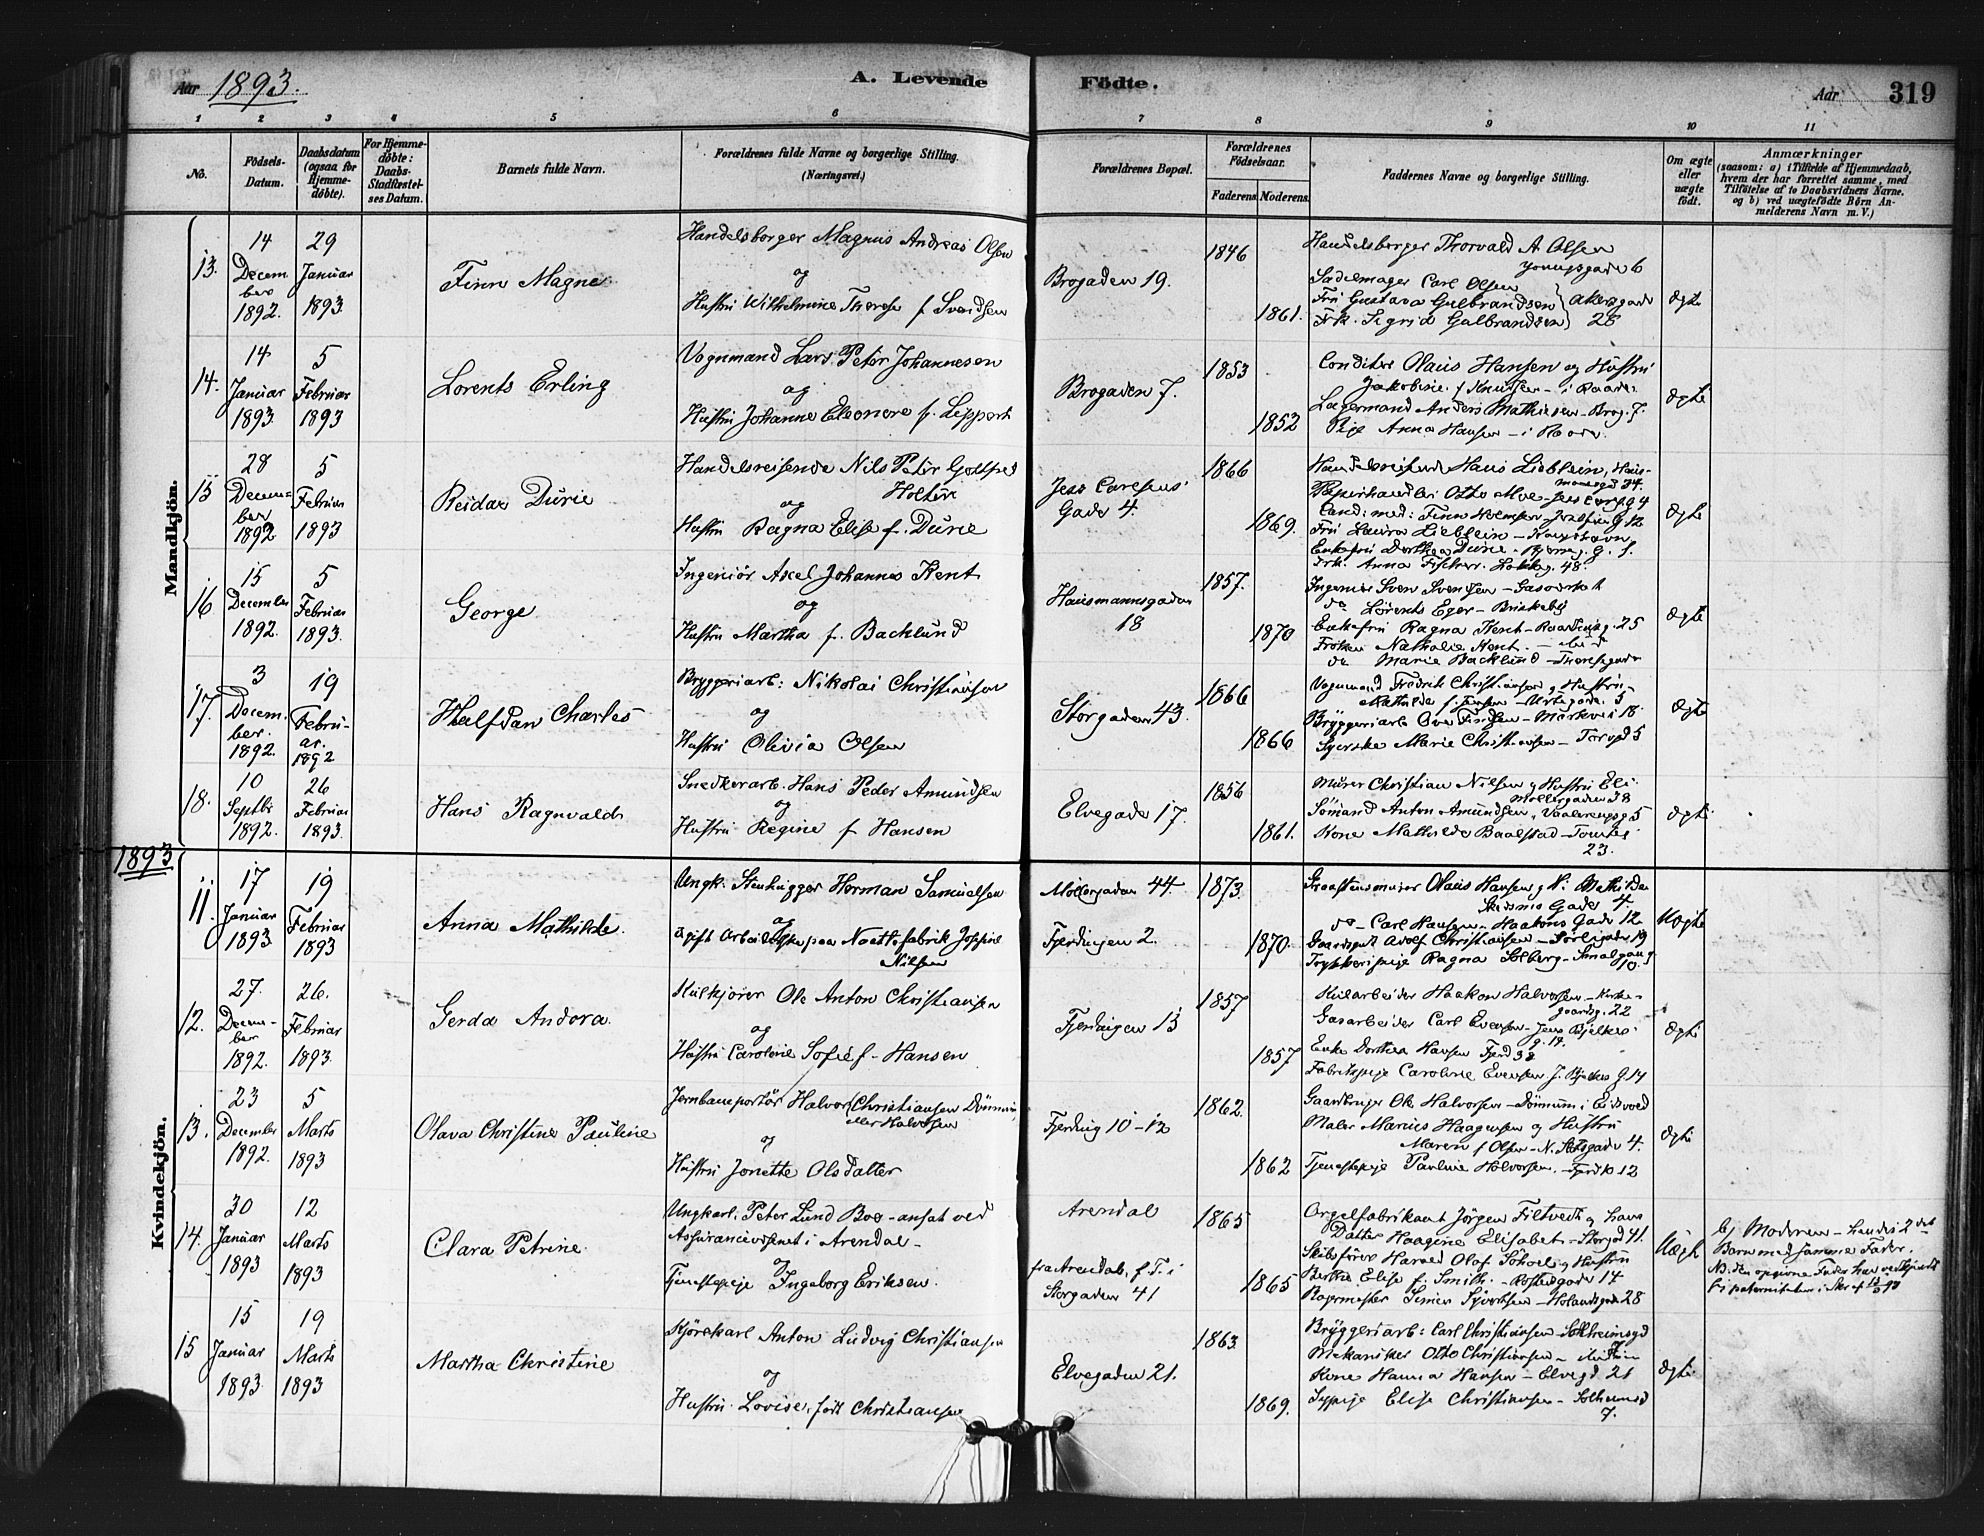 Aar 1893.
A. Levende
Födte.
Aar
319
1 2 3 4 5 6 7 8 9 10 11
No.
Födsels-
Datum.
Daabsdatum
(ogsaa for
Hjemme-
döbte).
For Hjemme-
döbte:
Daabs-
Stadfæstel-
ses Datum.
Barnets fulde Navn.
Forældrenes fulde Navne og borgerlige Stilling.
(Næringsvei.)
Forældrenes Bopæl.
Forældrenes
Födselsaar.
Faderens
Moderens
Faddernes Navne og borgerlige Stilling.
Om ægte
eller
uægte
födt.
Anmærkninger
(saasom: a) i Tilfælde af Hjemmedaab,
hvem der har forrettet samme, med
Tilföielse af to Daabsvidners Navne.
og b) ved uægtefödte Börn An-
melderens Navn m. V.)
Mandkjön.
13.
14
Decem
ber
1892.
29
Januar
1893.
Finn Magne
Handelsborger Magnus Andreas Olsen
og
Hustru Wilhelmine Therese f. Svendsen
Brogaden 19.
1846
1861.
Handelsborger Thorvald A. Olsen
Youngsgade 6
Sadelmager Carl Olsen
Fru Gustava Gulbrandsen
Frk. Sigrid Gulbrandsen
Akersgade
28
Ægte
14.
14
Januar
1893.
5
Februar
1893
Lorents Erling
Vognmand Lars Peter Johannesen
og
Hustru Johanne Eleonore f. Leppert
Brogaden 7.
1853
1852
Conditor Olaus Hansen og Hustru
Jakobine f. Knudsen - i Raade
Lagermand Anders Mathisen - Brog. 7.
Pige Anna Hansen - i Raade
Ægte
15
28
Decem-
ber
1892
5
Februar
1893
Reidar Durie
Handelsreisende Nils Peter Gottfred
Holter
og
Hustru Ragna Elise f. Durie
Jess Carlsens
Gade 4.
1866
1869.
Handelsreisende Hans Lieblein, Haus-
mannsgd 34.
Papirhandler Otto Moe - Jess Carlsg 4
Cand: med: Finn Holmsen
Fru Laura Lieblein
Enkefru Dorthea Durie
Frk. Anna Fischer.
Ægte
16
15
December
1892.
5
Februar
1893.
George
Ingeniör Axel Johannes Kent
og
Hustru Martha f. Backlund
Hausmannsgaden
18
1857.
1870
Ingeniör Sven Svensen - Gasværket
do Lorents Eger - Briskeby
Enkefru Ragna Kent
Fröken Nathalie Kent.
do Marie Backlund - Theresegade
Ægte
17.
3
Decem-
ber.
1892.
19
Febru-
ar.
1892
Halfdan Charles
Bryggeriarb: Nikolai Christiansen
og
Hustru Olivia Olsen
Storgaden 43.
1866
1866
Vognmand Fredrik Christiansen og Hustru
Mathilde f. Jensen - Urtegade. 3
Bryggeriarb Ove Findsen - Markvei 18.
Syerske Marie Christiansen - Torvgd 5
Ægte
18.
10
Septbr
1892.
26
Februar
1893.
Hans Ragnvald
Snedkerarb. Hans Peder Amundsen
og
Hustru Regine f. Hansen
Elvegade 17.
1856
1861.
Murer Christian Nilsen og Hustru Eli
Möllergaden 38
Sömand Anton Amundsen, Vaalerengsg 5
Kone Mathilde Baalstad
23.
Ægte
1893
Kvindekjön.
11.
17
Januar
1893.
19
Februar
1893
Anna Mathilde.
Ungk. Stenhugger Herman Samuelsen
og
ugift Arbeiderske paa Naattefabrik Josefine
Nilsen
Möllergaden 44.
Fjerdingen 2.
1873.
1870.
Olaus Hansen og H. Mathilde
Skedsmo Gade 4.
do - Carl Hansen - Haakons Gade 12
Gaardsgut Adolf Christiansen - Sörligade 19
Trykkeripige Ragna Solberg - Smalgang
10.
Uægte
12.
27.
Decem-
ber
1892.
26.
Februar
1893.
Gerda Andora.
Kulkjörer Ole Anton Christiansen
og
Hustru Caroline Sofie f. Hansen
Fjerdingen 13
1857
1857
Kularbeider Haakon Halvorsen - Kirke-
gaardsg. 22
Gasarbeider Carl Evensen - Jens Bjelkes
g. 14.
Enke Dorthea Hansen Fjerd 38
Fabrikspige Caroline Evensen J. Bjelkes G 14
Ægte
13.
23
December
1892.
5
Marts
1893
Olava Christine Pauline
Jernbaneportör Halvor Christiansen Dönnum
eller Halvorsen
og
Hustru Jonette Olsdatter
Fjerding 10-12
1862.
1862
Gaardbruger Ole Halvorsen - Dönnum i Eidsvold
Maler Marius Haagensen og Hustru
Maren f. Olsen - N. Slotsgade 4.
Tjenestepige Pauline Halvorsen. - Fjerd 10 12
Ægte
14.
30
Januar
1893
12
Marts
1893
Clara Petrine.
Ungkarl. Peter Lund Boe - ansat ved
Assurancevæsenet i Arendal -
og
Tjenestepige Ingeborg Eriksen.
Arendal
fra Arendal, f. T. i
Storgaden 41
1865
1865
Orgelfabrikant Jörgen Filtvedt og hans
Datter Haagine Elisabet - Storgd 41.
Skibsförer Harald Olaf og Hustru
Berthe Elise f. Smith. 14
Bagermester - Holandsgade 28
Uægte
b) Moderen - hendes 2det
Barn med samme Fader.
NB. den opgivne Fader har vedkjendt
sig paterniteten i Skr. af
15
15
Januar
1893
19
Marts
1893
Martha Christine
Kjörekarl Anton Ludvig Christiansen
og
Hustru Lovise, født Christiansen
Elvegaden 21.
1863
1869.
Bryggeriarb: Carl Christiansen - Solheimsgd
7
Mekaniker Otto Christiansen
Kone Hanna Hansen - Elvegd 21
Sypige Elise Christiansen - Solheimsgd
7.
Ægte